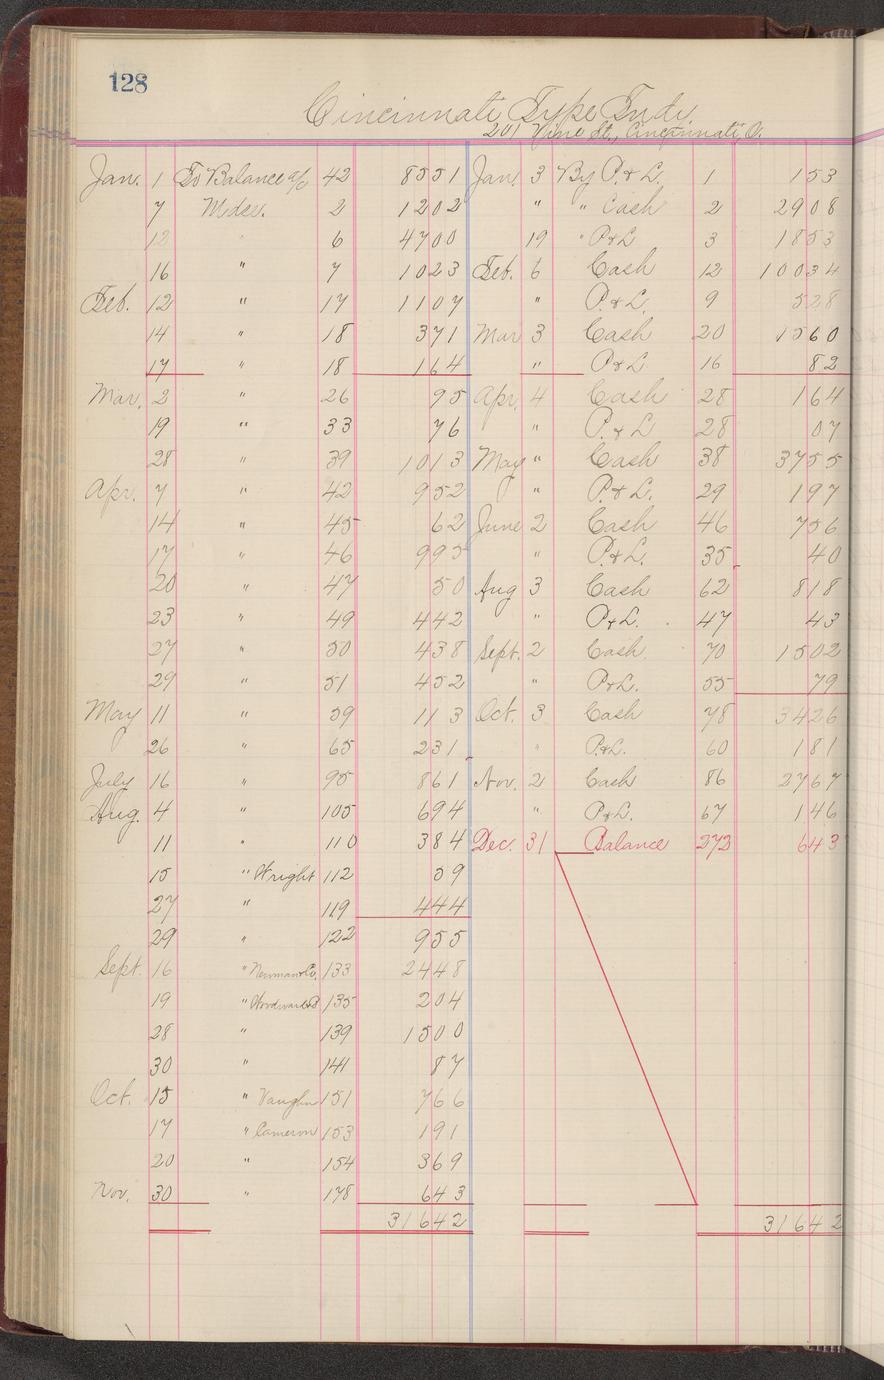 128
Cincinnati Type Fndr.
201 Vine St., Cincinnati O.
Jan. 1 To Balance a/c 42 8551 Jan. 3 By P. & L. 1 153
7 Mdse. 2 1202 " " Cash 2 2908
12 " 6 4700 19 " P & L 3 1853
16 " 7 1023 Feb. 6 Cash 12 10034
Feb. 12 " 17 1107 " P. & L. 9 528
14 " 18 371 Mar 3 Cash 20 1560
17 " 18 164 " P. & L 16 82
Mar. 2 " 26 95 Apr. 4 Cash 28 164
19 " 33 76 " P. & L 28 07
28 " 39 1013 May " Cash 38 3755
Apr. 7 " 42 952 " P. & L. 29 197
14 " 45 62 June 2 Cash 46 756
17 " 46 995 " P. & L. 35 40
20 " 47 50 Aug 3 Cash 62 818
23 " 49 442 " P. & L. 47 43
27 " 50 438 Sept. 2 Cash 70 1502
29 " 51 452 " P & L. 55 79
May 11 " 59 113 Oct. 3 Cash 78 3426
26 " 65 231 " P. & L. 60 181
July 16 " 95 861 Nov. 2 Cash 86 2767
Aug. 4 " 105 694 " P & L. 67 146
11 " 110 384 Dec. 31 Balance 272 643
15 " Wright 112 59
27 " 119 444
29 " 122 955
Sept. 16 " Newman & Co. 133 2448
19 " 135 204
28 " 139 1500
30 " 141 87
Oct. 15 " Vaughn 151 766
17 " Cameron 153 191
20 " 154 369
Nov. 30 " 178 643
31642 31642